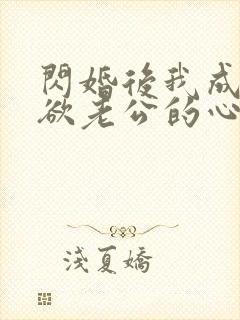 閃婚後我成
欲老公的心
淺夏嬌